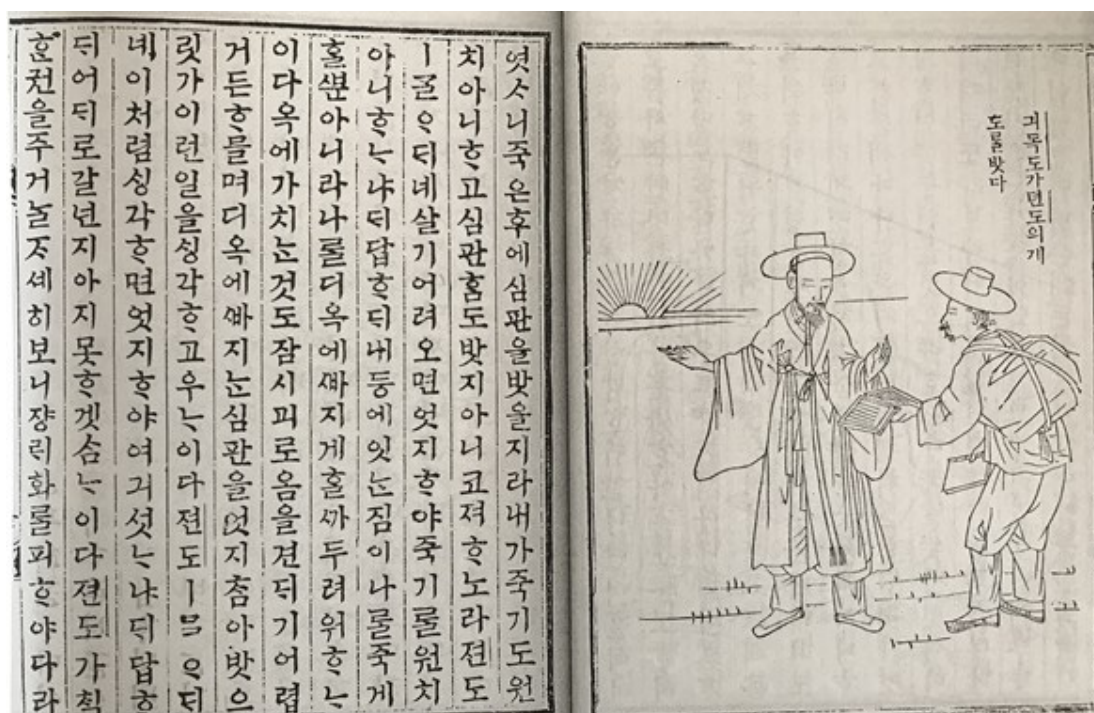 긔독도가뎐도의게
도를밧다
엿ᄉᆞ니죽은후에심판을밧을지라내가죽기도원
치아니ᄒᆞ고심판홈도밧지아니코져ᄒᆞ노라뎐도
ㅣᄀᆞᆯᄋᆞᄃᆡ네살기어려오면엇지ᄒᆞ야죽기ᄅᆞᆯ원치
아니ᄒᆞᄂᆞ냐ᄃᆡ답ᄒᆞᄃᆡ내등에잇ᄂᆞᆫ짐이나ᄅᆞᆯ죽게
ᄒᆞᆯᄲᅮᆫ아니라나ᄅᆞᆯ디옥에ᄲᅡ지게ᄒᆞᆯᄭᅡ두려워ᄒᆞᄂᆞ
이다옥에가치ᄂᆞᆫ것도잠시괴로옴을견ᄃᆡ기어렵
거든ᄒᆞ믈며디옥에ᄲᅡ지ᄂᆞᆫ심판을엇지ᄎᆞᆷ아밧으
릿가이런일을ᄉᆡᆼ각ᄒᆞ고우ᄂᆞ이다뎐도ㅣᄀᆞᆯᄋᆞᄃᆡ
네이처럼ᄉᆡᆼ각ᄒᆞ면엇지ᄒᆞ야여긔섯ᄂᆞ냐ᄃᆡ답ᄒᆞ
ᄃᆡ어ᄃᆡ로갈넌지아지못ᄒᆞ겟ᄉᆞᆷᄂᆞ이다뎐도가ᄎᆡᆨ
ᄒᆞᆫ권을주거ᄂᆞᆯᄌᆞ셰히보니쟝ᄅᆡ화ᄅᆞᆯ피ᄒᆞ야다라